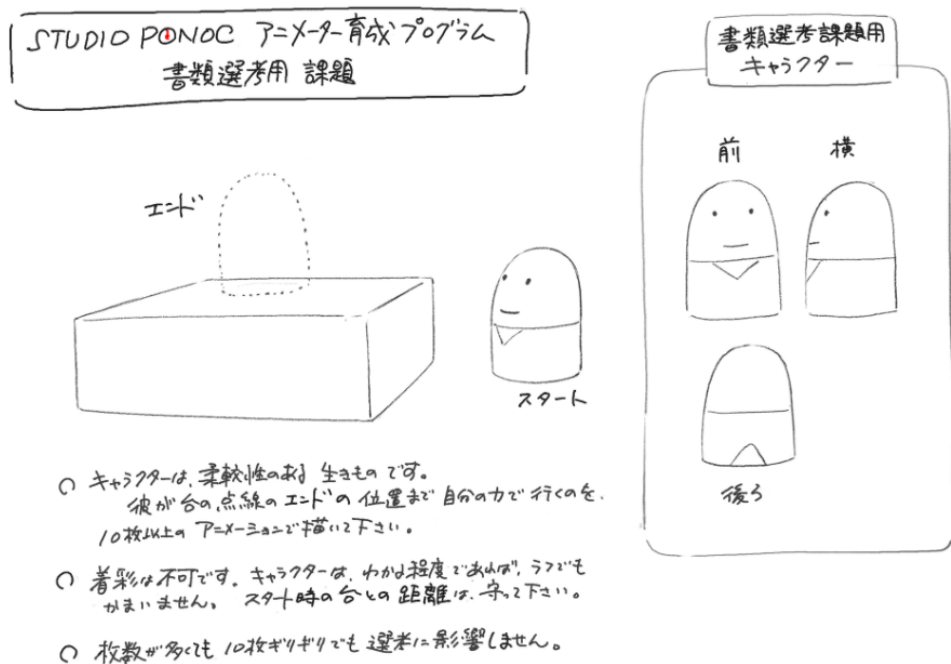 STUDIO PONOC アニメーター育成プログラム
書類選考用 課題
書類選考課題用
キャラクター
前
横
後ろ
エンド
スタート
○ キャラクターは、柔軟性のある 生きものです。
彼が台の点線のエンドの位置まで自分の力で行くのを、
10枚以上のアニメーションで描いて下さい。
○ 着彩は不可です。キャラクターは、わかる程度であれば、ラフでも
かまいません。 スタート時の台との距離は、守って下さい。
○ 枚数が多くても10枚ギリギリでも選考に影響しません。